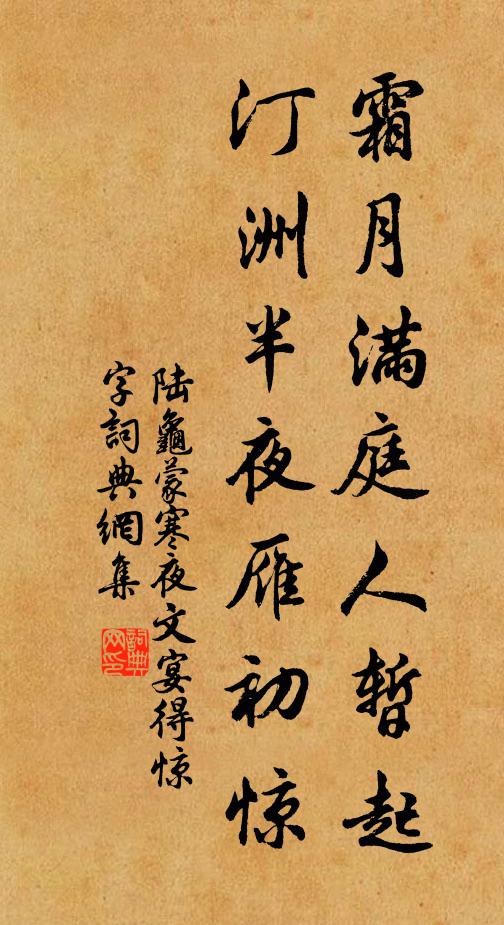 霜月满庭人暂起
汀洲半夜雁初惊
陆龟蒙寒夜文宴得惊
字词典网集
词典
网印